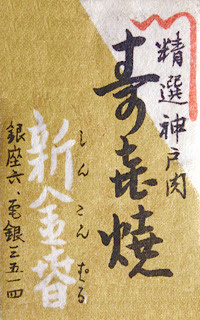 精選神戸肉
寿喜燒
しんこんぱる
新金春
銀座六、電銀三五一四